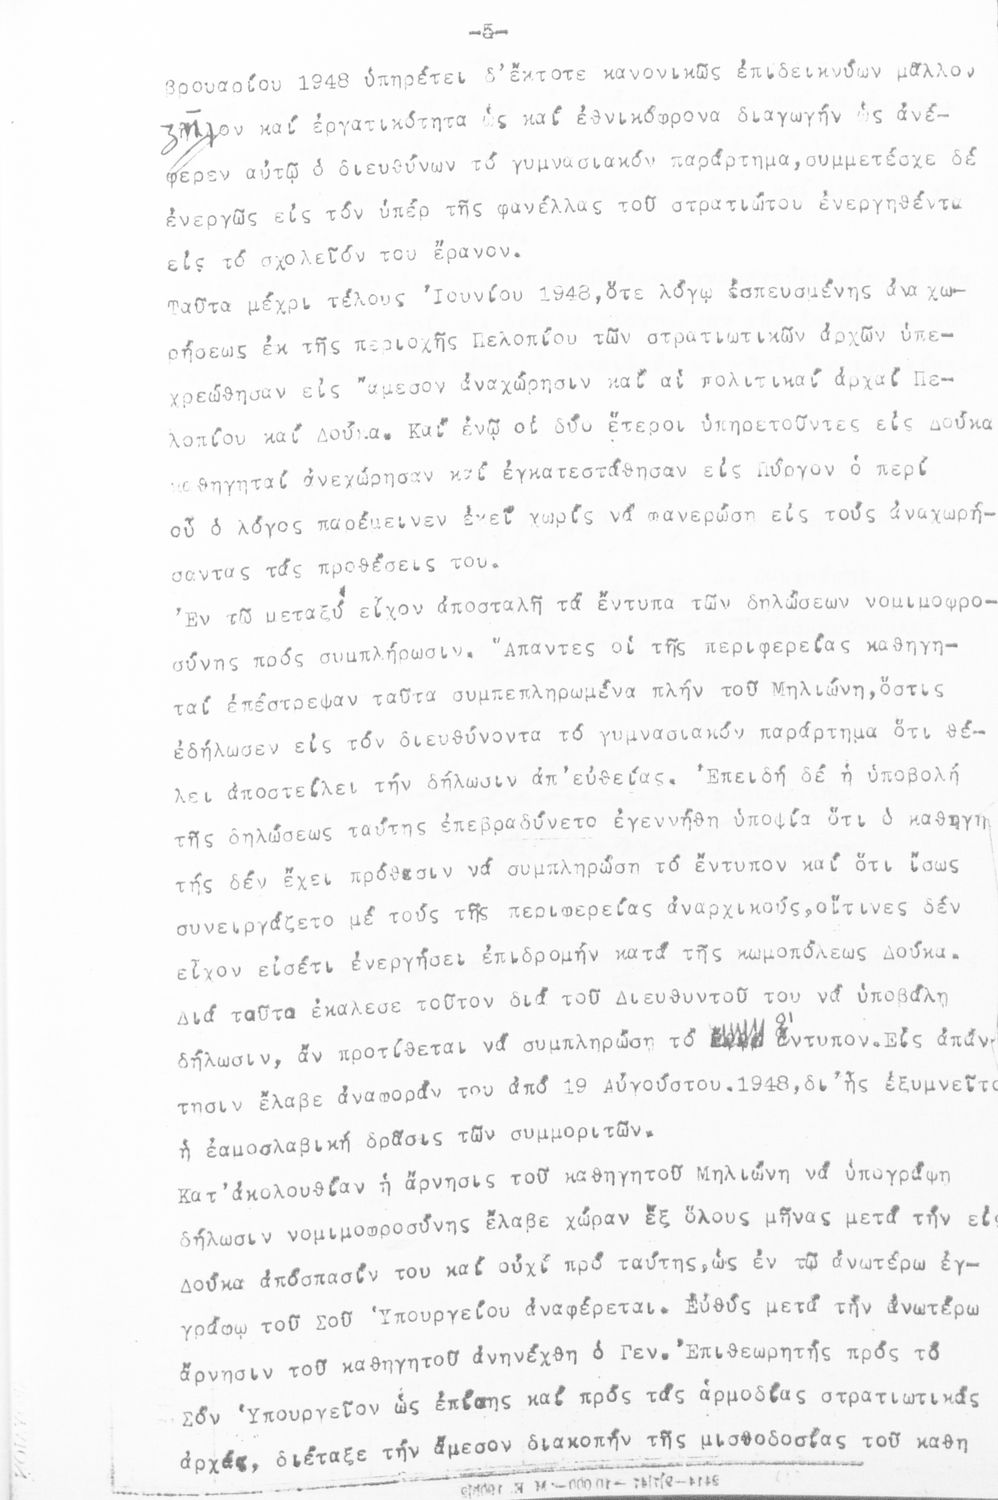 -5-
βρουαρίου 1948 ὑπηρέτει δ'ἔκτοτε κανονικῶς ἐπιδεικνύων μᾶλλον
ζῆλον καί ἐργατικότητα ὡς καί ἐθνικόφρονα διαγωγήν ὡς ἀνέ-
φερεν αὐτῷ ὁ διευθύνων τό γυμνασιακόν παράρτημα,συμμετέσχε δέ
ἐνεργῶς εἰς τόν ὑπέρ τῆς φανέλλας τοῦ στρατιώτου ἐνεργηθέντα
εἰς τό σχολεῖόν του ἔρανον.
Ταῦτα μέχρι τέλους 'Ιουνίου 1948,ὅτε λόγῳ ἐσπευσμένης ἀναχω-
ρήσεως ἐκ τῆς περιοχῆς Πελοπίου τῶν στρατιωτικῶν ἀρχῶν ὑπε-
χρεώθησαν εἰς ἄμεσον ἀναχώρησιν καί αἱ πολιτικαί ἀρχαί Πε-
λοπίου καί Δούκα. Καί ἐνῷ οἱ δύο ἕτεροι ὑπηρετοῦντες εἰς Δούκα
καθηγηταί ἀνεχώρησαν καί ἐγκατεστάθησαν εἰς Πύργον ὁ περί
οὗ ὁ λόγος παρέμεινεν ἐκεῖ χωρίς νά φανερώση εἰς τούς ἀναχωρή-
σαντας τάς προθέσεις του.
'Εν τῷ μεταξύ εἶχον ἀποσταλῆ τά ἔντυπα τῶν δηλώσεων νομιμοφρο-
σύνης πρός συμπλήρωσιν. Ἅπαντες οἱ τῆς περιφερείας καθηγη-
ταί ἐπέστρεψαν ταῦτα συμπεπληρωμένα πλήν τοῦ Μηλιώνη,ὅστις
ἐδήλωσεν εἰς τόν διευθύνοντα τό γυμνασιακόν παράρτημα ὅτι θέ-
λει ἀποστείλει τήν δήλωσιν ἀπ'εὐθείας. 'Επειδή δέ ἡ ὑποβολή
τῆς δηλώσεως ταύτης ἐπεβραδύνετο ἐγεννήθη ὑποψία ὅτι ὁ καθηγη
τής δέν ἔχει πρόθεσιν νά συμπληρώση τό ἔντυπον καί ὅτι ἴσως
συνειργάζετο μέ τούς τῆς περιφερείας ἀναρχικούς,οἵτινες δέν
εἶχον εἰσέτι ἐνεργήσει ἐπιδρομήν κατά τῆς κωμοπόλεως Δούκα.
Διά ταῦτα ἐκάλεσε τοῦτον διά τοῦ Διευθυντοῦ του νά ὑποβάλη
δήλωσιν, ἄν προτίθεται νά συμπληρώση τό ἔντυπον.Εἰς ἀπάν-
τησιν ἔλαβε ἀναφοράν του ἀπό 19 Αὐγούστου.1948,δι'ἧς ἐξυμνεῖτο
ἡ ἐαμοσλαβική δρᾶσις τῶν συμμοριτῶν.
Κατ'ἀκολουθίαν ἡ ἄρνησις τοῦ καθηγητοῦ Μηλιώνη νά ὑπογράψη
δήλωσιν νομιμοφροσύνης ἔλαβε χώραν ἔξ ὅλους μῆνας μετά τήν εἰς
Δούκα ἀπόσπασίν του καί οὐχί πρό ταύτης,ὡς ἐν τῷ ἀνωτέρω ἐγ-
γράφῳ τοῦ Σοῦ Ὑπουργείου ἀναφέρεται. Εὐθύς μετά τήν ἀνωτέρω
ἄρνησιν τοῦ καθηγητοῦ ἀνηνέχθη ὁ Γεν.'Επιθεωρητής πρός τό
Σόν Ὑπουργεῖον ὡς ἐπίσης καί πρός τάς ἁρμοδίας στρατιωτικάς
ἀρχάς, διέταξε τήν ἄμεσον διακοπήν τῆς μισθοδοσίας τοῦ καθη